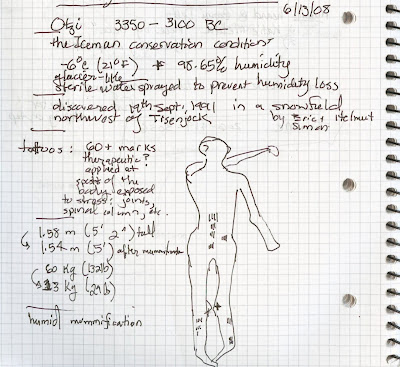 6/13/08
Otzi 3350 - 3100 BC
the Iceman conservation conditions
-6°C (21°F) * 98.65% humidity
glacier-like
sterile water sprayed to prevent humidity loss
discovered 19th Sept, 1991 in a snowfield
northwest of Tisenjoch by Erica + Helmut
Simon
tattoos: 60+ marks
therapeutic?
applied at
spots of the
body exposed
to stress: joints,
spinal column, etc.
1.58 m (5' 2") tall
1.54 m (5') after
60 Kg (132lb)
13 kg (29lb)
humid mummification